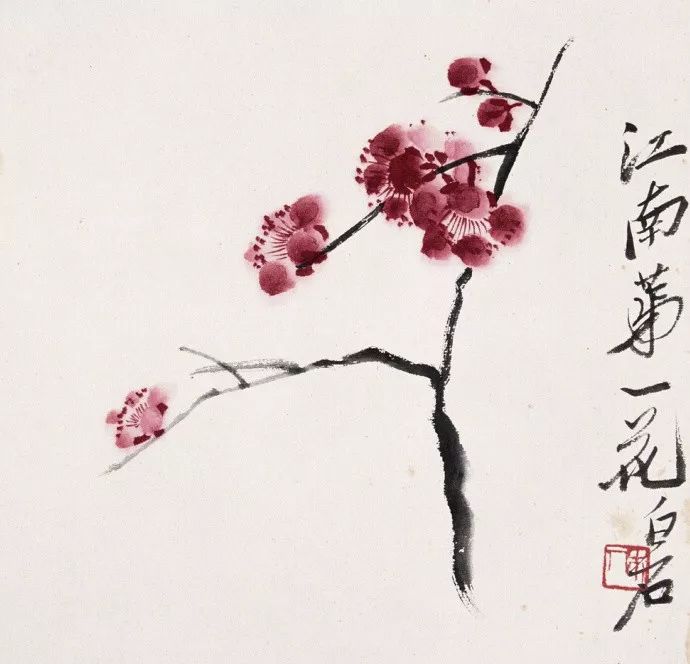 江南苐一花白石